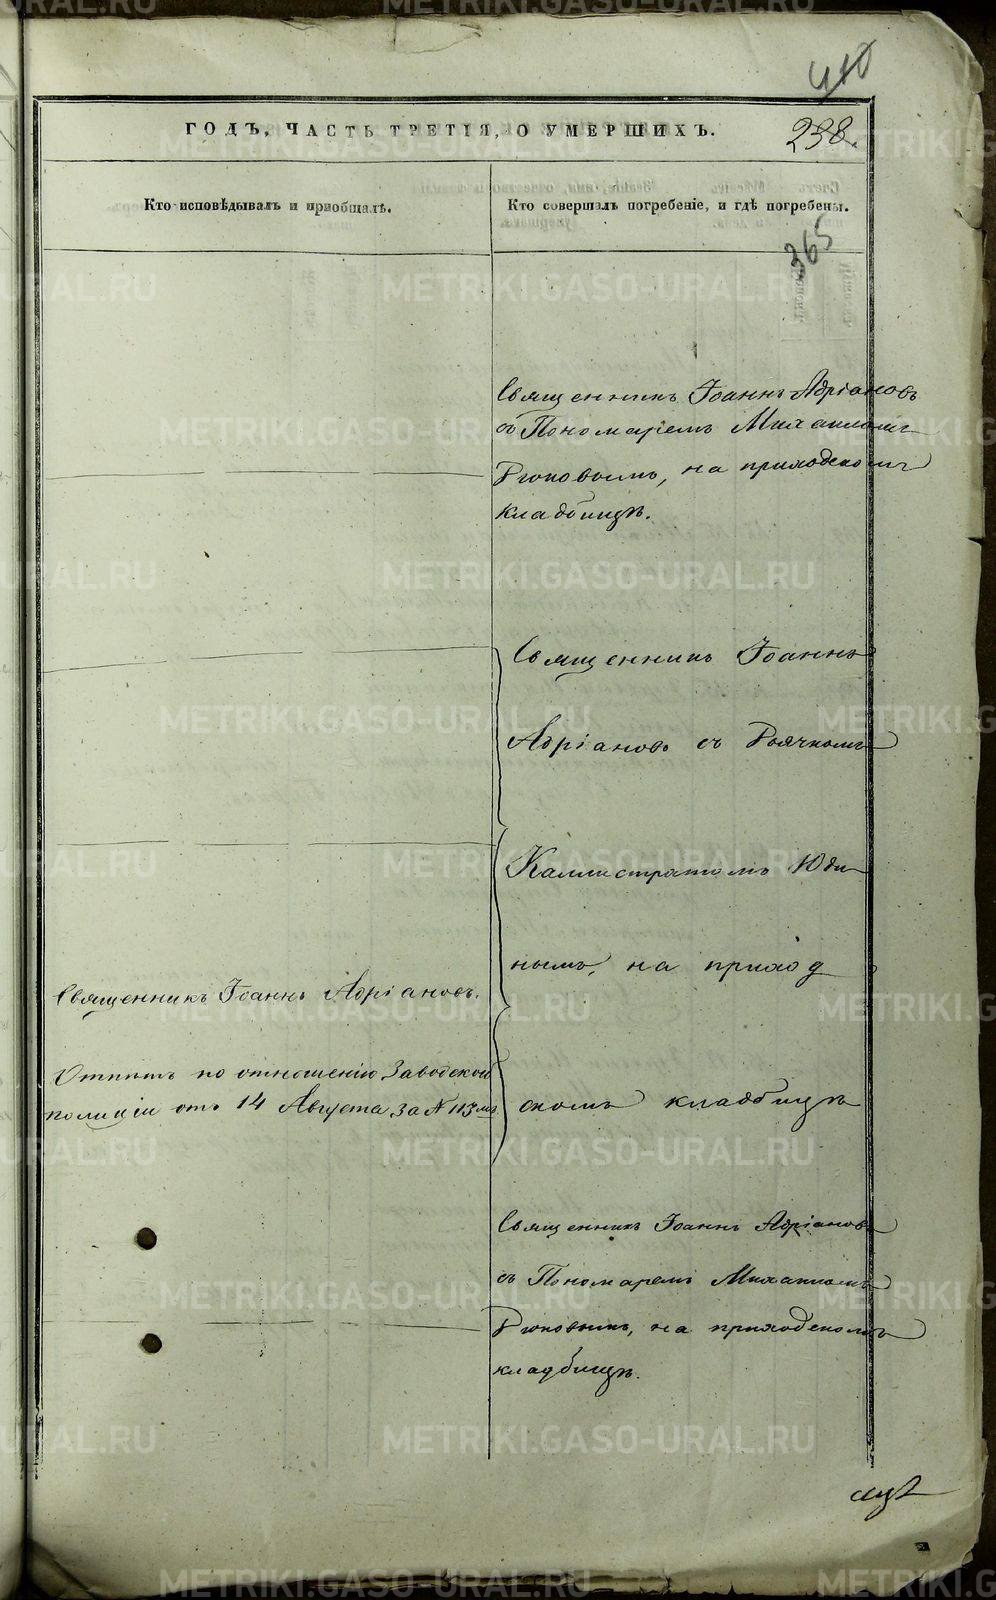 410
ГОДЪ, ЧАСТЬ ТРЕТІЯ, О УМЕРШИХЪ.
238.
Кто исповѣдывалъ и пріобщалъ.
Кто совершалъ погребеніе, и гдѣ погребены.
365
Священникъ Іоаннъ Адріановъ
съ Пономаремъ Михаиломъ
на приходскомъ
кладбищѣ.
Священникъ Іоаннъ
Адріановъ съ Дьячкомъ
Каллистратомъ Юди
нымъ, на приход
скомъ кладбищѣ
Священникъ Іоаннъ Адріановъ.
Отпѣтъ по отношенію Заводской
полиціи отъ 14 Августа за № 113мъ
Священникъ Іоаннъ Адріановъ
съ Пономаремъ Михаиломъ
на приходскомъ
кладбищѣ.
METRIKI.GASO-URAL.RU